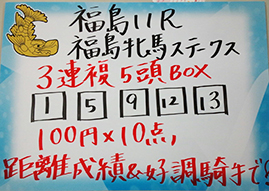 福島11R
福島牝馬ステークス
3連複5頭BOX
1 5 9 12 13
100円×10点,
距離成績&好調騎手で